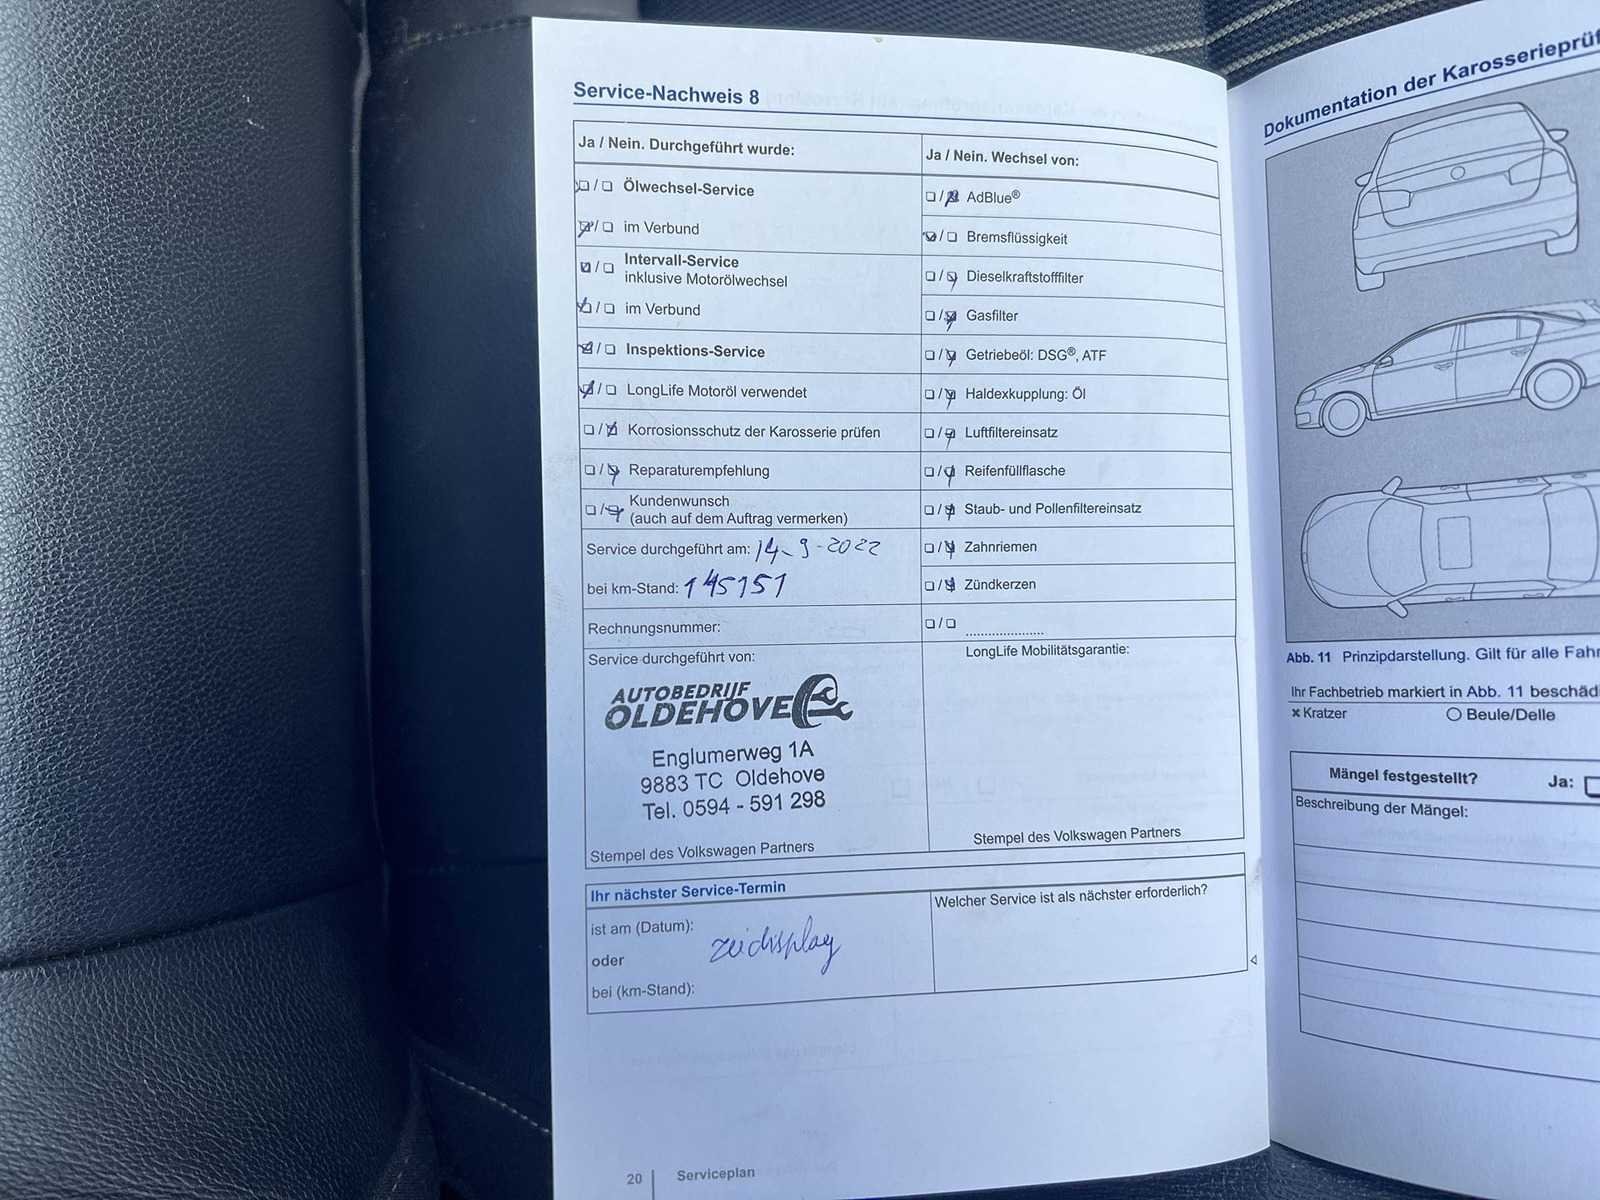 Service-Nachweis 8
Ja / Nein. Durchgeführt wurde:
Ölwechsel-Service
im Verbund
Intervall-Service
inklusive Motorölwechsel
im Verbund
Inspektions-Service
LongLife Motoröl verwendet
Korrosionsschutz der Karosserie prüfen
Reparaturempfehlung
Kundenwunsch
(auch auf dem Auftrag vermerken)
Service durchgeführt am: 14-9-2022
bei km-Stand: 145151
Rechnungsnummer:
Service durchgeführt von:
AUTOBEDRIJF
OLDEHOVE
Englumerweg 1A
9883 TC Oldehove
Tel. 0594 - 591 298
Stempel des Volkswagen Partners
Ja / Nein. Wechsel von:
AdBlue®
Bremsflüssigkeit
Dieselkraftstofffilter
Gasfilter
Getriebeöl: DSG®, ATF
Haldexkupplung: Öl
Luftfiltereinsatz
Reifenfüllflasche
Staub- und Pollenfiltereinsatz
Zahnriemen
Zündkerzen
LongLife Mobilitätsgarantie:
Stempel des Volkswagen Partners
Ihr nächster Service-Termin
ist am (Datum):
oder
bei (km-Stand):
zie display
Welcher Service ist als nächster erforderlich?
20 Serviceplan
Dokumentation der Karosserieprüf
Abb. 11 Prinzipdarstellung. Gilt für alle Fahr
Ihr Fachbetrieb markiert in Abb. 11 beschäd
x Kratzer
Beule/Delle
Mängel festgestellt?
Ja:
Beschreibung der Mängel: